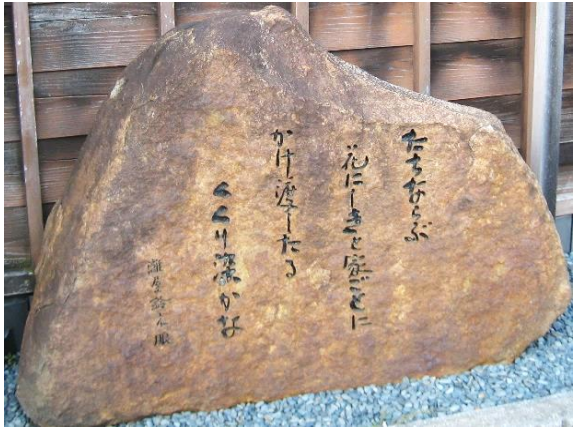 たちならぶ
花にしきと家ごとに
かけ渡したる
くくり染かな